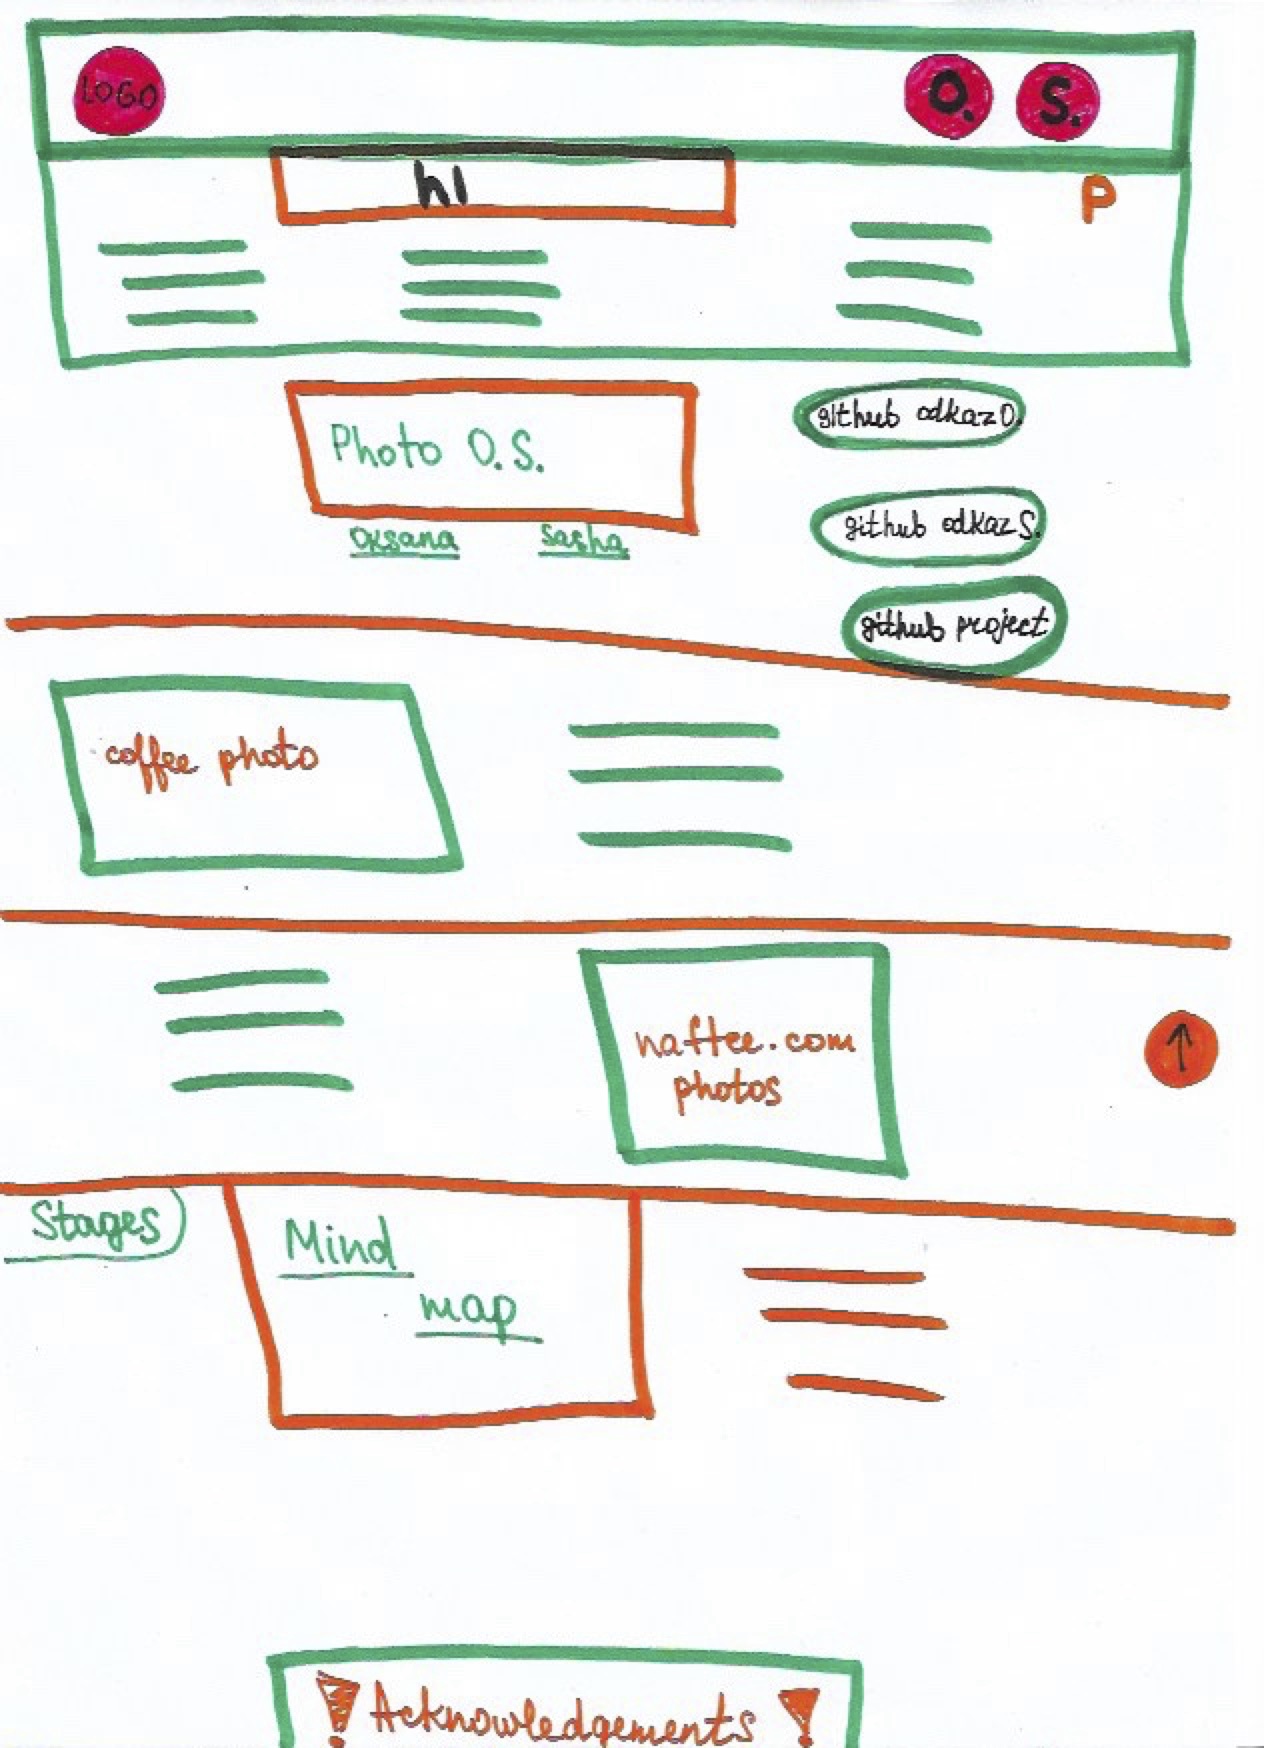 LOGO
O. S.
h1
P
Photo O.S.
github odkaz O.
github odkaz S.
Oksana Sasha
github project
coffee photo
naftee.com
photos
Stages
Mind
map
! Acknowledgements !